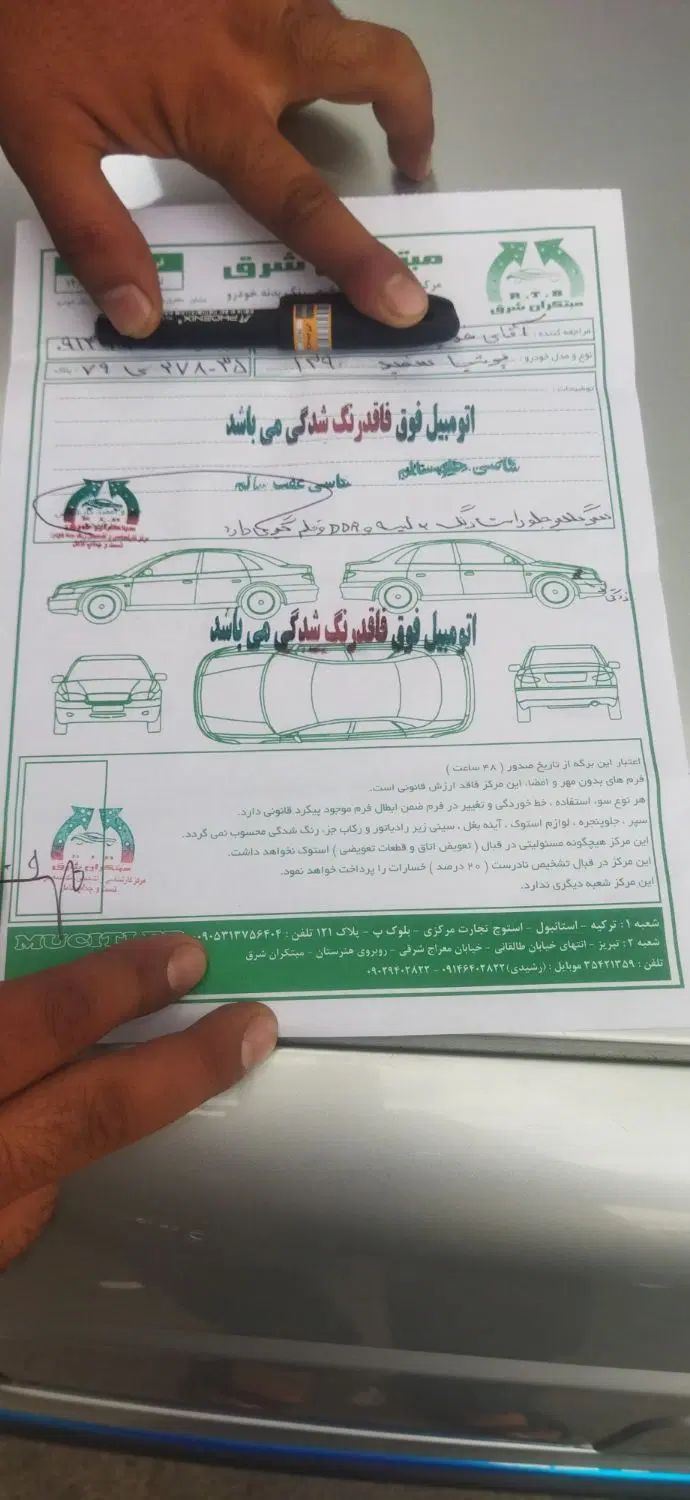 مبتکران شرق
R.T.S
مبتکران شرق
بدنه خودرو
PHOENIX
مراجعه کننده : آقای
نوع و مدل خودرو : سفید ۱۳۹۰
پلاک ۷۹ ی ۲۷۸-۳۵
توضیحات :
اتومبیل فوق فاقدرنگ شدگی می باشد
شاسی جلو سالم
شاسی عقب سالم
گلگیر جلو راست رنگ
دارد
اتومبیل فوق فاقدرنگ شدگی می باشد
اعتبار این برگه از تاریخ صدور ( ۴۸ ساعت )
فرم های بدون مهر و امضا، این مرکز فاقد ارزش قانونی است.
هر نوع سوء استفاده ، خط خوردگی و تغییر در فرم ضمن ابطال فرم موجود پیگرد قانونی دارد.
سپر ، جلوپنجره ، لوازم استوک ، آینه بغل ، سینی زیر رادیاتور و رکاب جز، رنگ شدگی محسوب نمی گردد.
این مرکز هیچگونه مسئولیتی در قبال ( تعویض اتاق و قطعات تعویضی ) استوک نخواهد داشت.
این مرکز در قبال تشخیص نادرست ( ۲۰ درصد ) خسارات را پرداخت خواهد نمود.
این مرکز شعبه دیگری ندارد.
شعبه ۱ : ترکیه - استانبول - استوچ تجارت مرکزی - بلوک پ - پلاک ۱۲۱ تلفن : ۰۹۰۵۳۱۳۷۵۶۴۰۴
شعبه ۲ : تبریز - انتهای خیابان طالقانی - خیابان معراج شرقی - روبروی هنرستان - مبتکران شرق
تلفن : ۳۵۴۲۱۳۵۹ موبایل : (رشیدی) ۰۹۱۴۶۴۰۲۸۲۲ - ۰۹۰۲۹۴۰۲۸۲۲